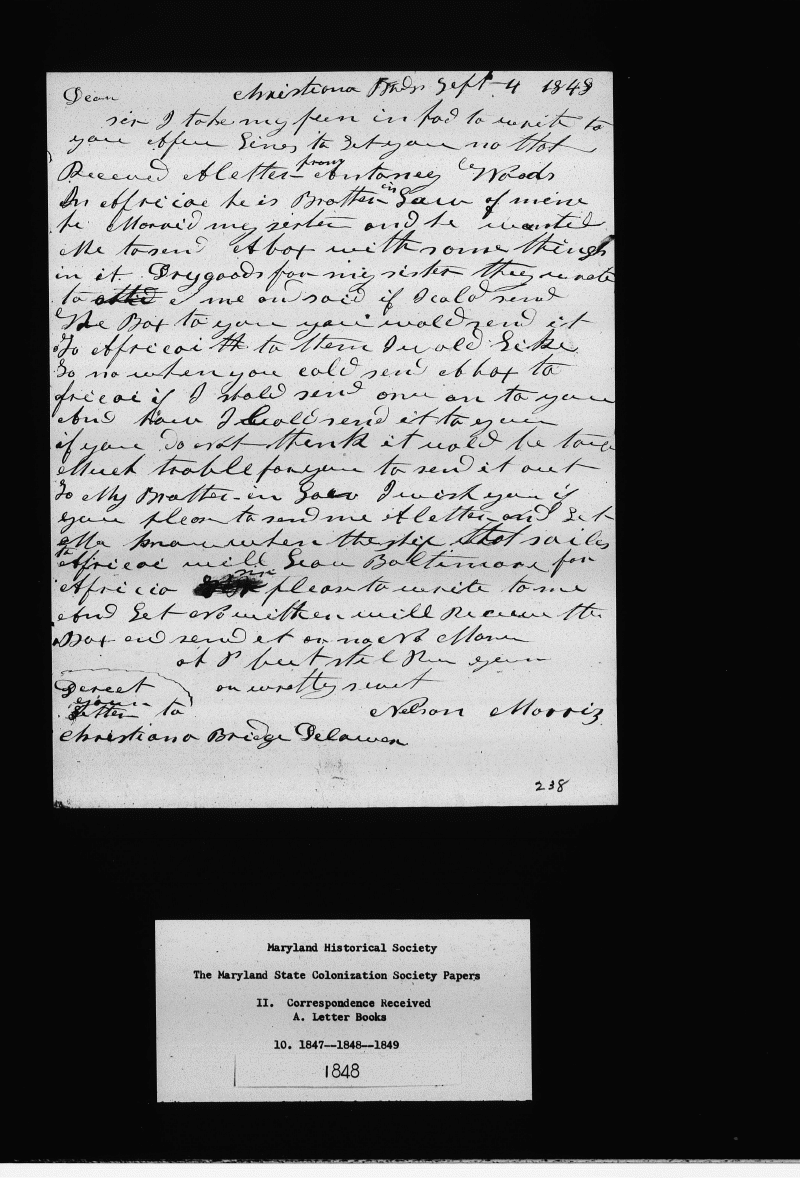 Christiana Brdg Sept 4 1848
Dear
sir I take my pen in had to write to
you Afew Lines to Let you no that
Received A letter from Antoney Woods
In Africae he is Brother in Law of mine
he Maraid my sister and he wanted
Me to send A box with some things
in it. Drygoods for my sister they wrote
to me and said if I cold send
The Box to you you wold send it
To Africai to them I wold Like
To no when you cold send A box to
fricai if I shold send one on to you
And how I Cold send it to you
if you do not think it wold be too
Much troble for you to send it out
To My Brother-in Law I wish you if
you pleas to send me A letter and Let
Me know when the ship that sailes
to Africai will Leav Baltimore for
Africia sir pleas to write to me
And Let no will Receive the
Box and send it on
at P but stil
on
Derect
your
Letter to
Nelson Morris
Christiana Bridge Delawer
238
Maryland Historical Society
The Maryland State Colonization Society Papers
II. Correspondence Received
A. Letter Books
10. 1847--1848--1849
1848